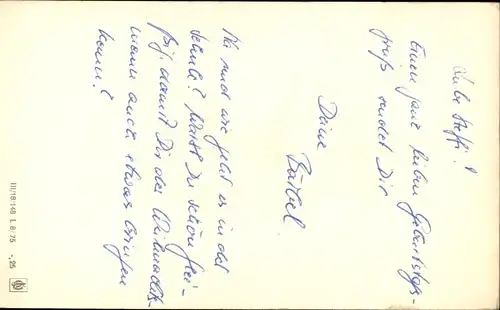 Liebe Steffi!
Einen ganz lieben Geburtstags-
gruß sendet Dir
Deine
Bärbel.
Na und wie geht es in der
Schule? Machst Du schön flei-
ßig, damit Dir der Weihnachts-
mann auch etwas bringen
kann?
III/18/148 L 8/75
-,25